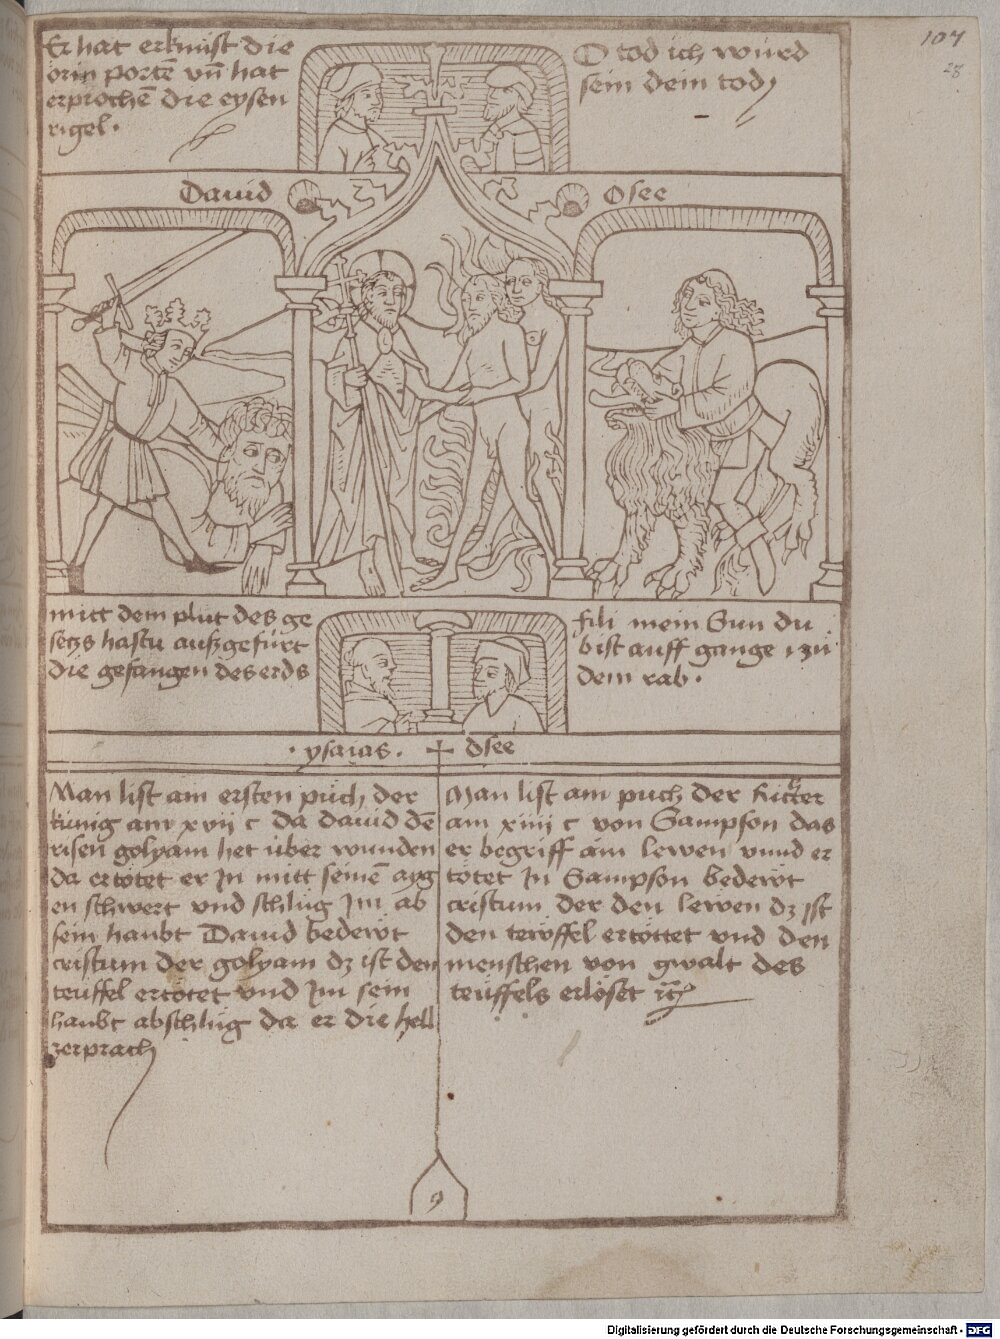 107
28
Er hat erknist die
örin portē vñ hat
erprochē die eysen
rigel.
O tod ich würd
sein dein tod
Dauid
Osee
mitt dem plut des ge
seczs hastu außgefürt
die gefangen des erds
fili mein Sun du
bist auff gange zu
dem rab.
. ysaias .
osee
Man list am ersten puch der
kunig am xvij c da dauid dē
risen golyam het über wunden
da ertötet er In mitt seinē ayg
en schwert vnd schlug Im ab
sein haubt Dauid bedewt
cristum der golyam dz ist den
teuffel ertötet vnd Im sein
haubt abschlug da er die hell
zerprach
Man list am puch der Richter
am xiiij c von Sampson das
er begriff ain lewen vnnd er
tötet In Sampson bedewt
cristum der den lewen dz ist
den tewffel ertöttet vnd den
menschen von gwalt des
teuffels erlöset
9
Digitalisierung gefördert durch die Deutsche Forschungsgemeinschaft - DFG